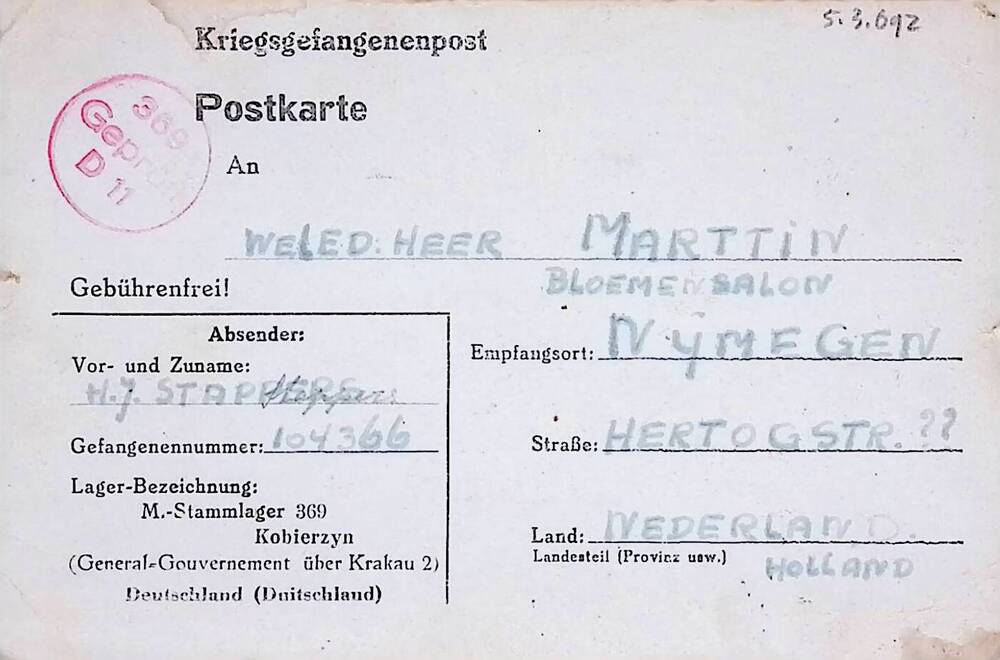 5.3.692
Kriegsgefangenenpost
Postkarte
369
Geprüft
D 11
An
WELED: HEER MARTTIN
BLOEMENSALON
Gebührenfrei!
Absender:
Vor- und Zuname:
H.J. STAPPERS Stappers
Gefangenennummer: 104366
Lager-Bezeichnung:
M.-Stammlager 369
Kobierzyn
(General-Gouvernement über Krakau 2)
Deutschland (Duitschland)
Empfangsort: NYMEGEN
Straße: HERTOGSTR. ??
Land: NEDERLAND.
Landesteil (Provinz usw.) HOLLAND